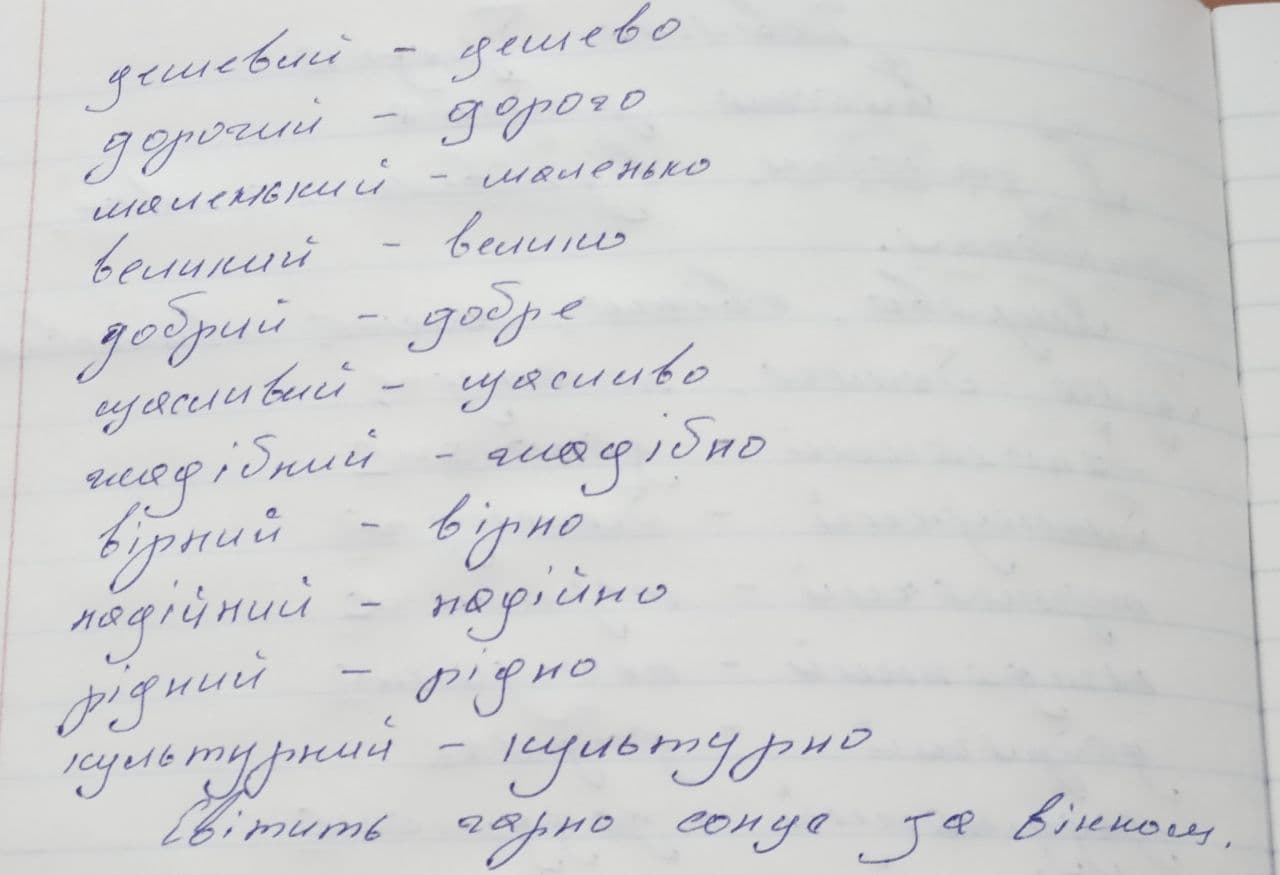 дешевий - дешево
дорогий - дорого
маленький - маленько
великий - велико
добрий - добре
щасливий - щасливо
жадібний - жадібно
вірний - вірно
надійний - надійно
рідний - рідно
культурний - культурно
Світить гарно сонце за вікном.